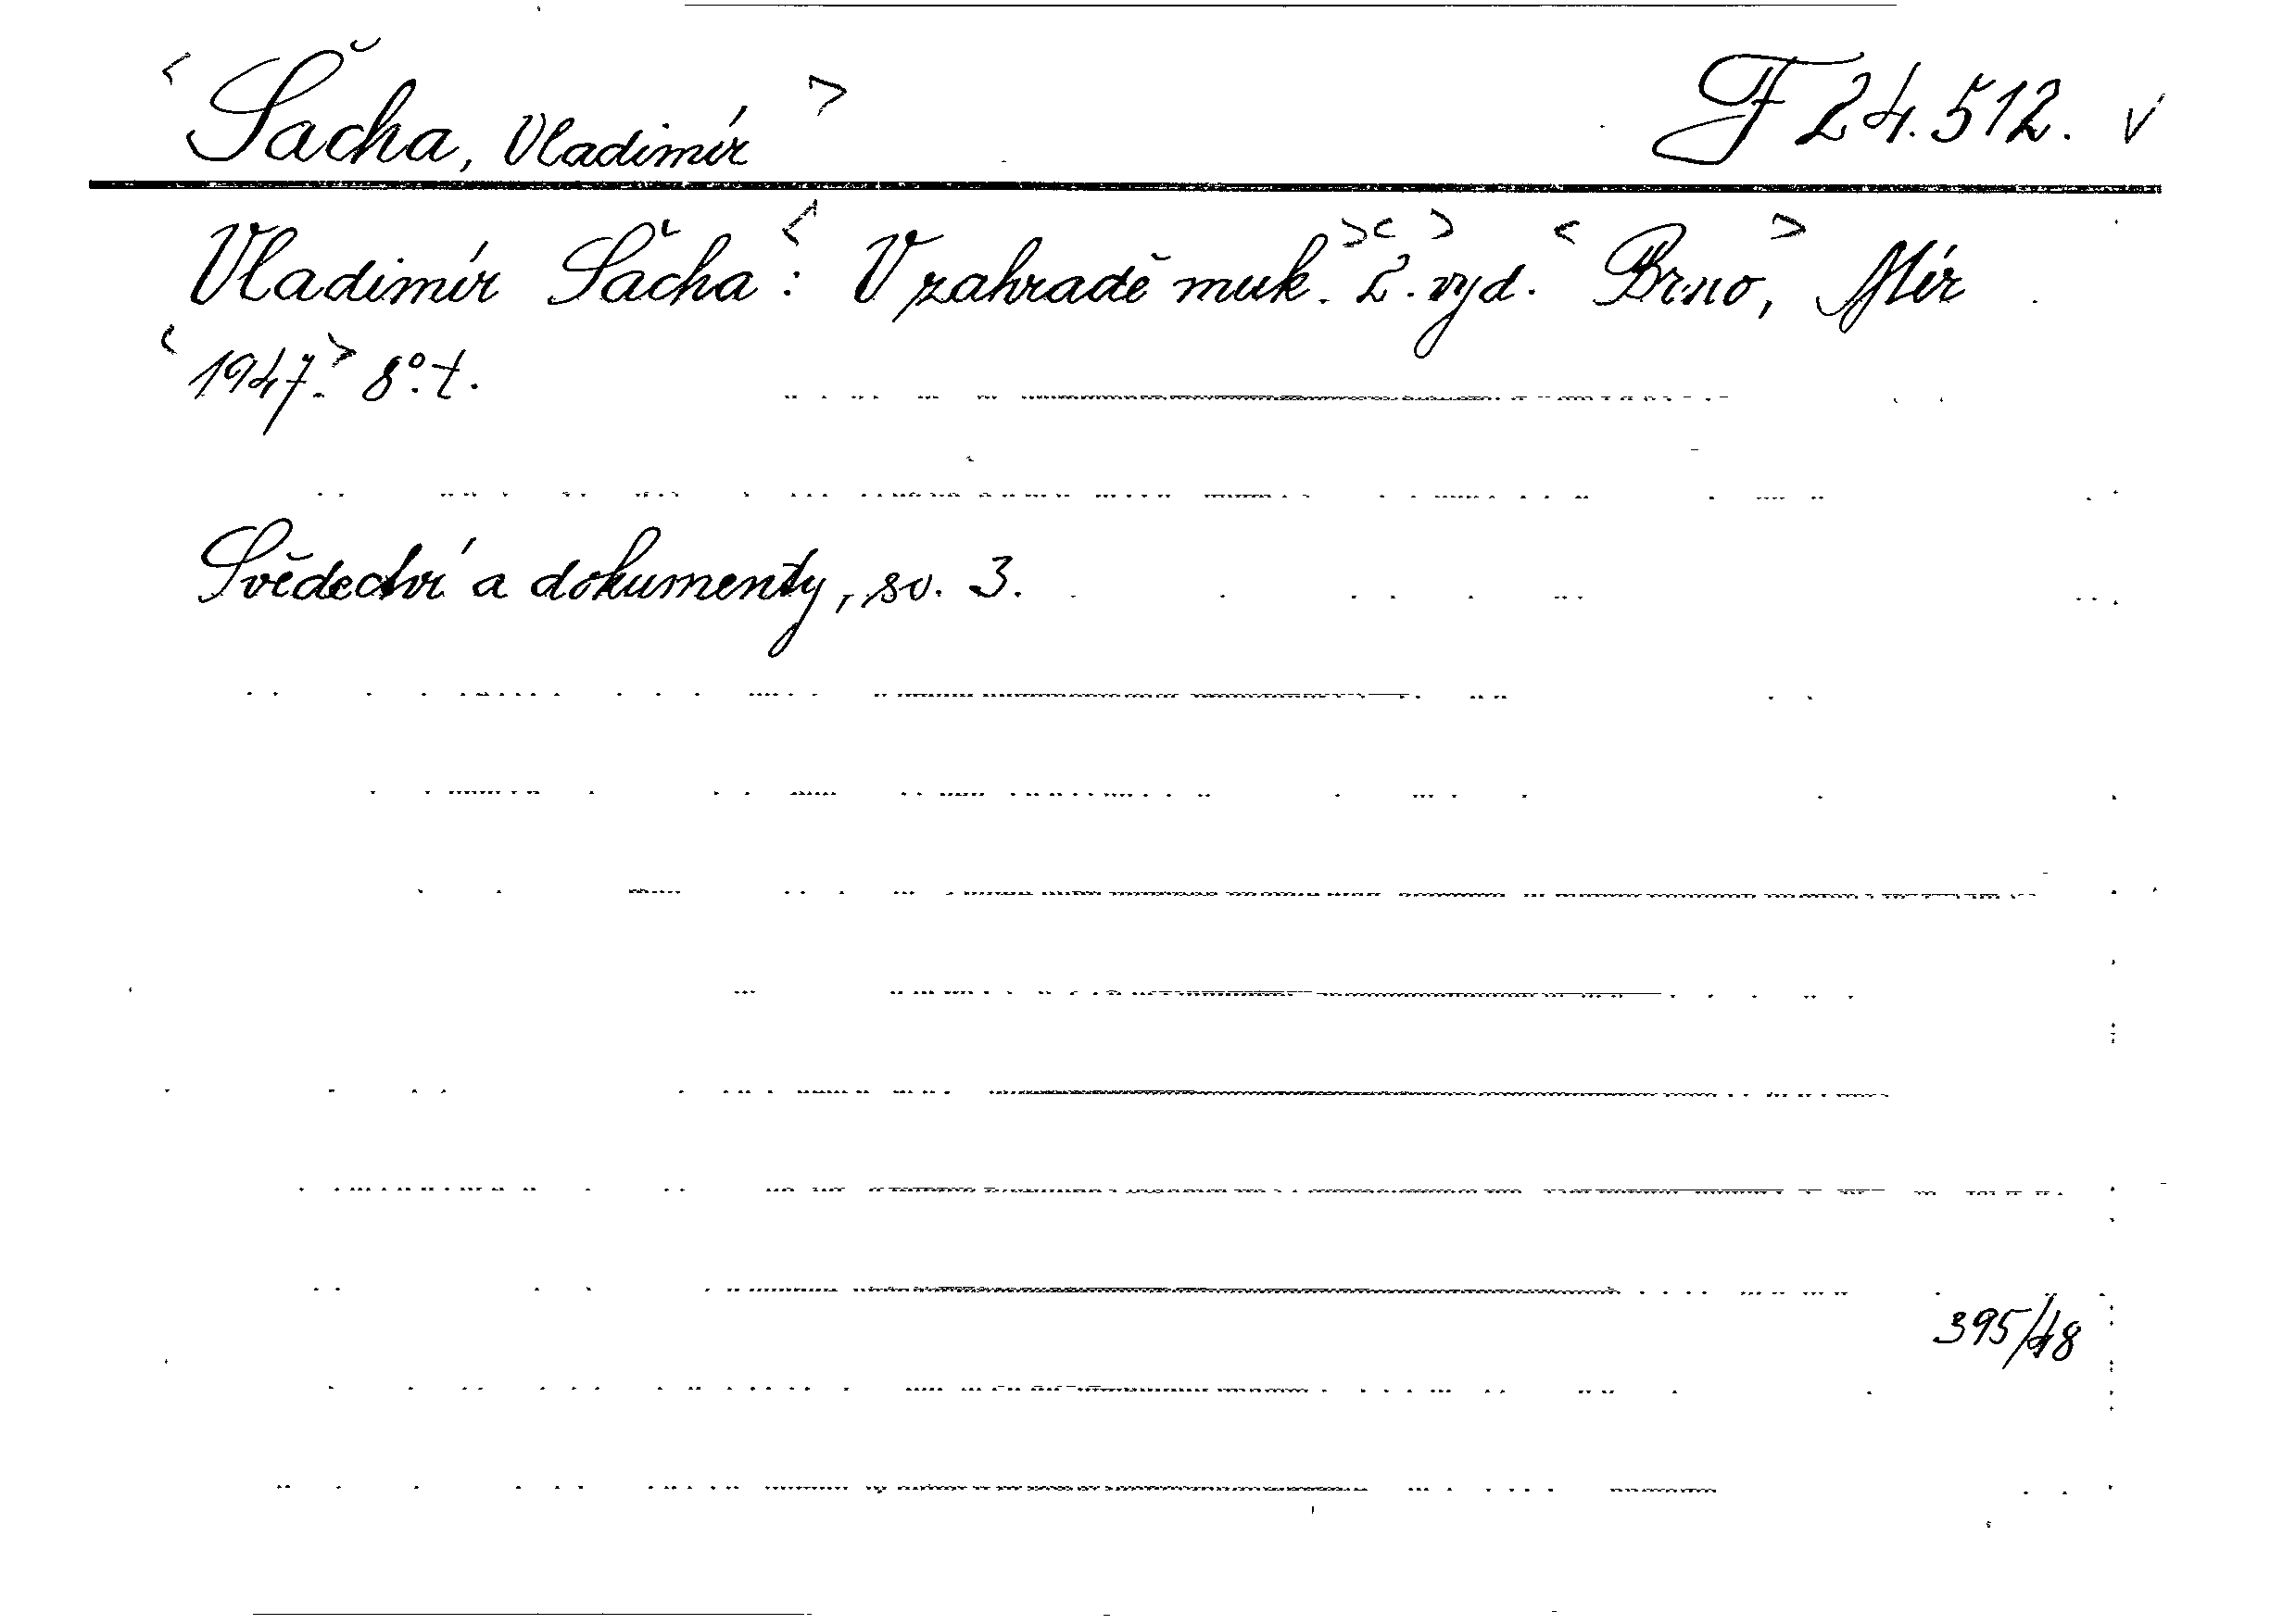 <Šácha, Vladimír> F 24.512. v
Vladimír Šácha: <V zahradě muk.> <2. vyd.> <Brno,> Mír
<1947.> 8°. t.
Svědectví a dokumenty, sv. 3.
395/48